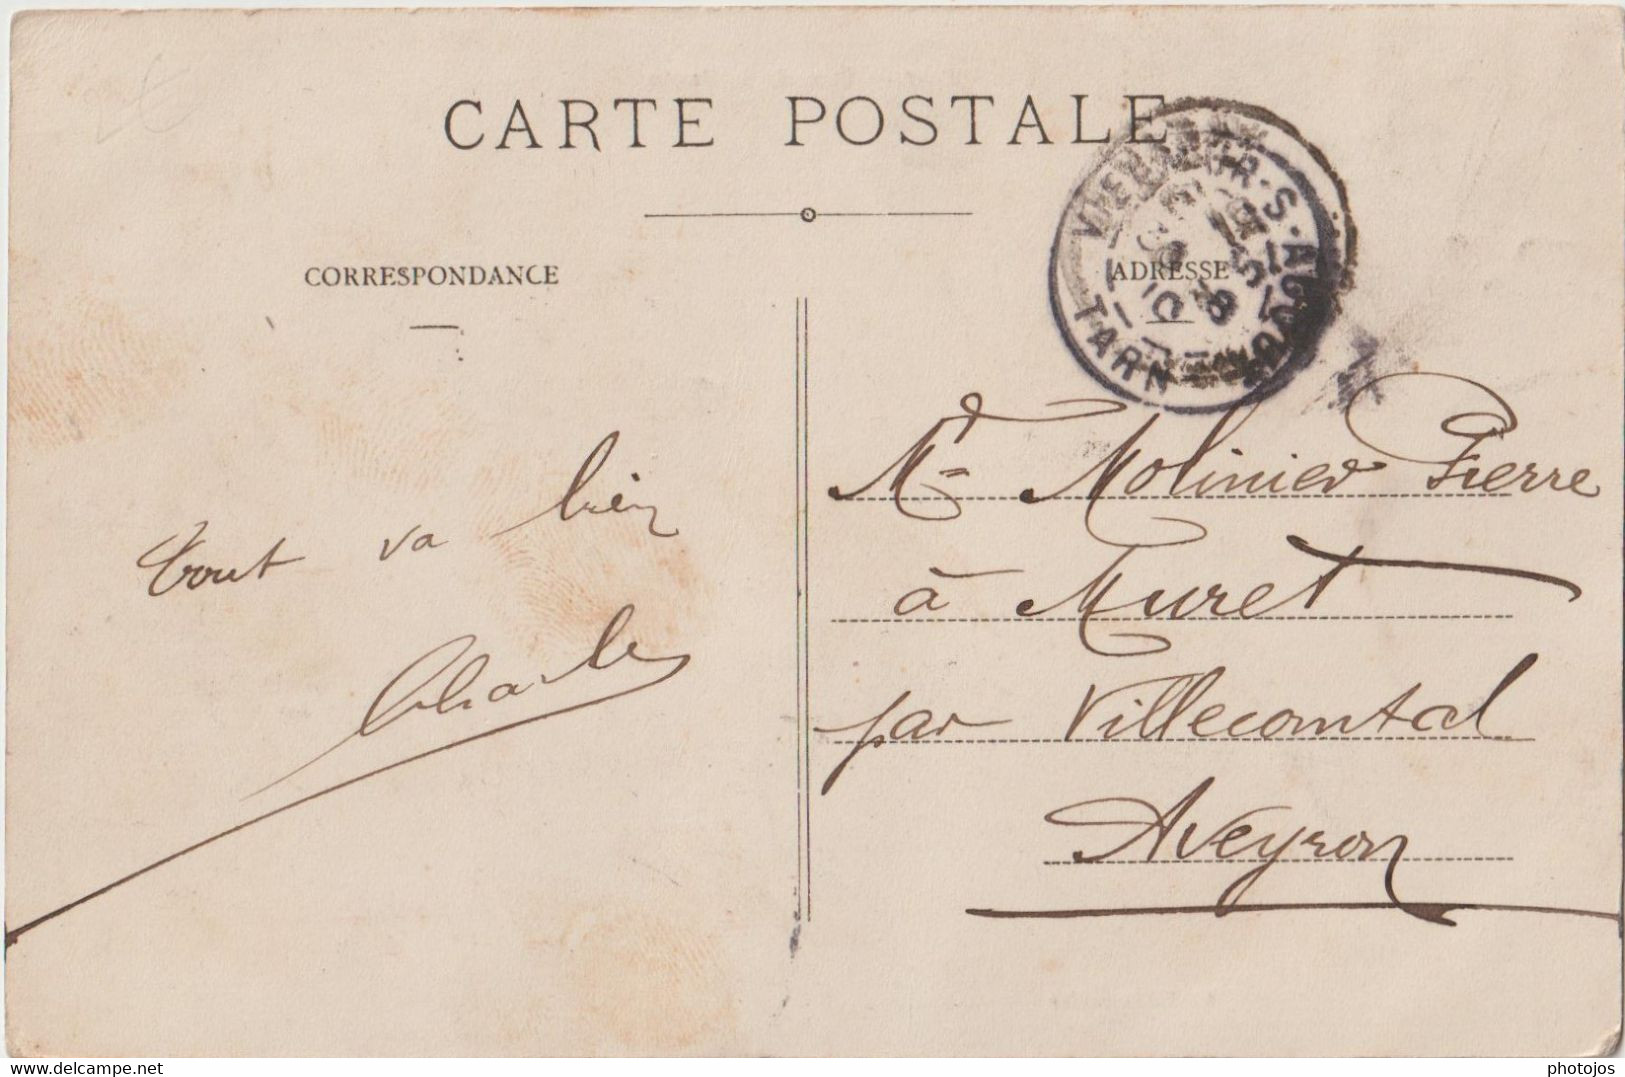 CARTE POSTALE
CORRESPONDANCE
ADRESSE
TARN
tout va bien
Charles
Mr Molinier Pierre
à Muret
par Villecomtal
Aveyron
www.delcampe.net
photojos